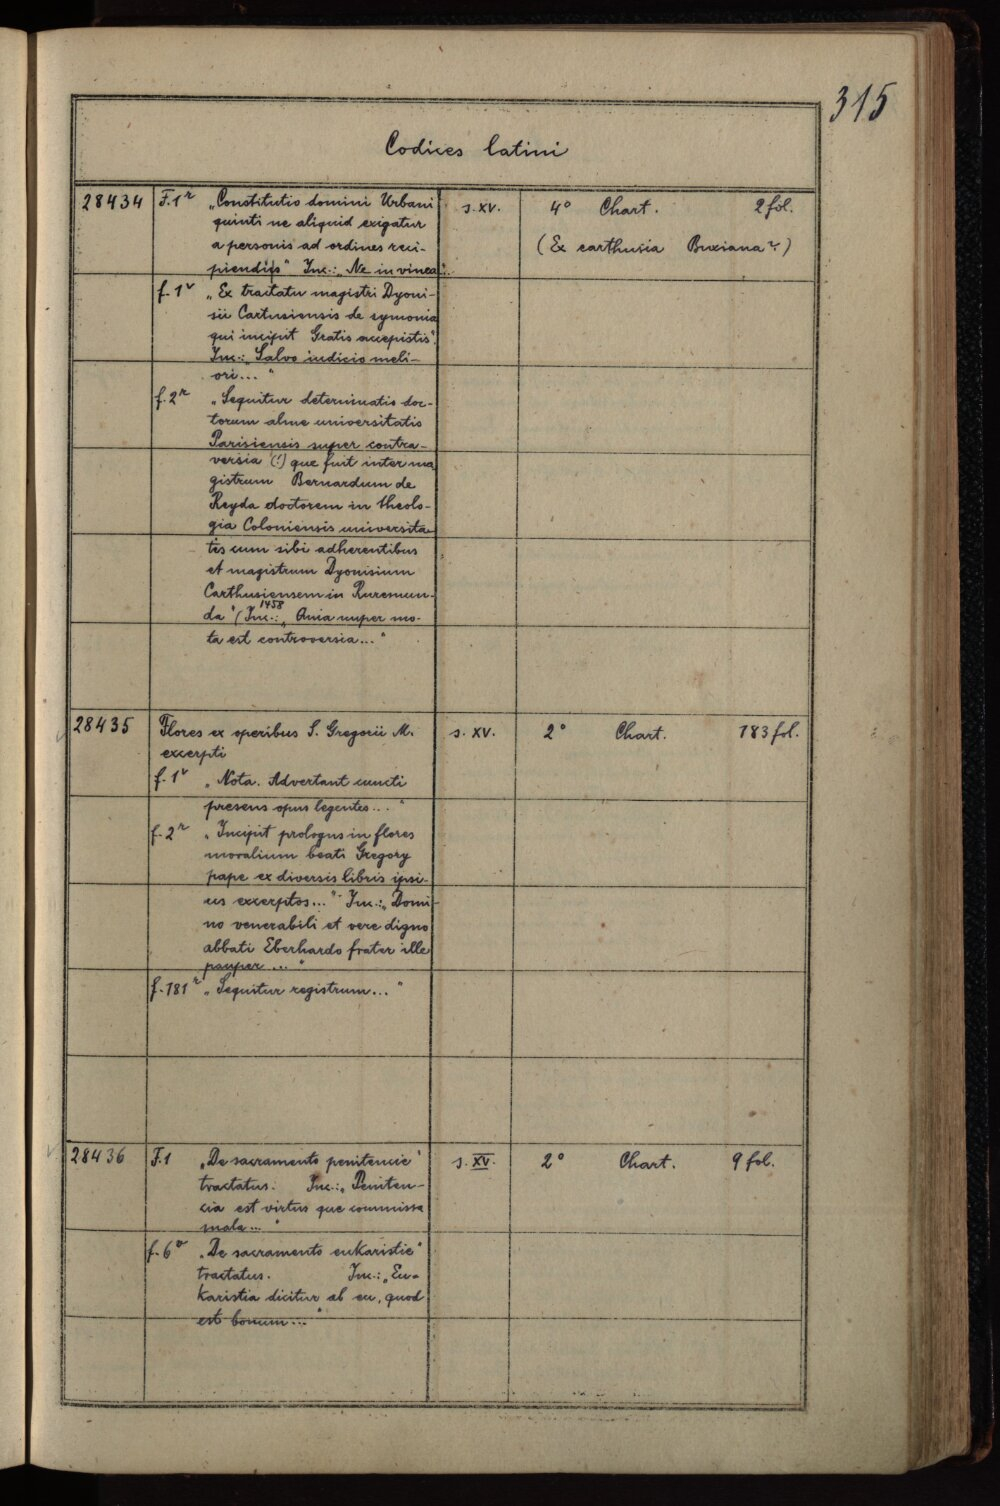 315
Codices latini
28434 F.1r „Constitutio domini Urbani s. XV. 4° Chart. 2 fol.
quinti ne aliquid exigatur
a personis ad ordines reci- (Ex carthusia Buxiana?)
piendis“ Inc.: „Ne in vinea“.
f. 1v „Ex tractatu magistri Dyoni-
sii Cartusiensis de symonia
qui incipit Gratis accepistis“.
Inc.: „Salvo iudicio meli-
ori...“
f. 2r „Sequitur determinatio doc-
torum alme universitatis
Parisiensis super contra-
versia (!) que fuit inter ma
gistrum Bernardum de
Reyda doctorem in theolo-
gia Coloniensis universita-
tis cum sibi adherentibus
et magistrum Dyonisium
Carthusiensem in Ruremun-
1458
da“ (Inc.: „Quia nuper mo-
ta est controversia...“
28435 Flores ex operibus S. Gregorii M. s. XV. 2° Chart. 183 fol.
excerpti
f. 1v „Nota. Advertant cuncti
presens opus legentes...“
f. 2r „Incipit prologus in flores
moralium beati Gregory
pape ex diversis libris ipsi-
us excerptos...“ Inc.: „Domi-
no venerabili et vere digno
abbati Eberhardo frater ille
pauper...“
f. 181r „Sequitur registrum...“
28436 F.1 „De sacramento penitencie“ s. XV. 2° Chart. 9 fol.
tractatus. Inc.: „Peniten-
cia est virtus que commissa
mala...“
f. 6v „De sacramento eukaristie“
tractatus. Inc.: „Eu-
karistia dicitur ab eu, quod
est bonum...“